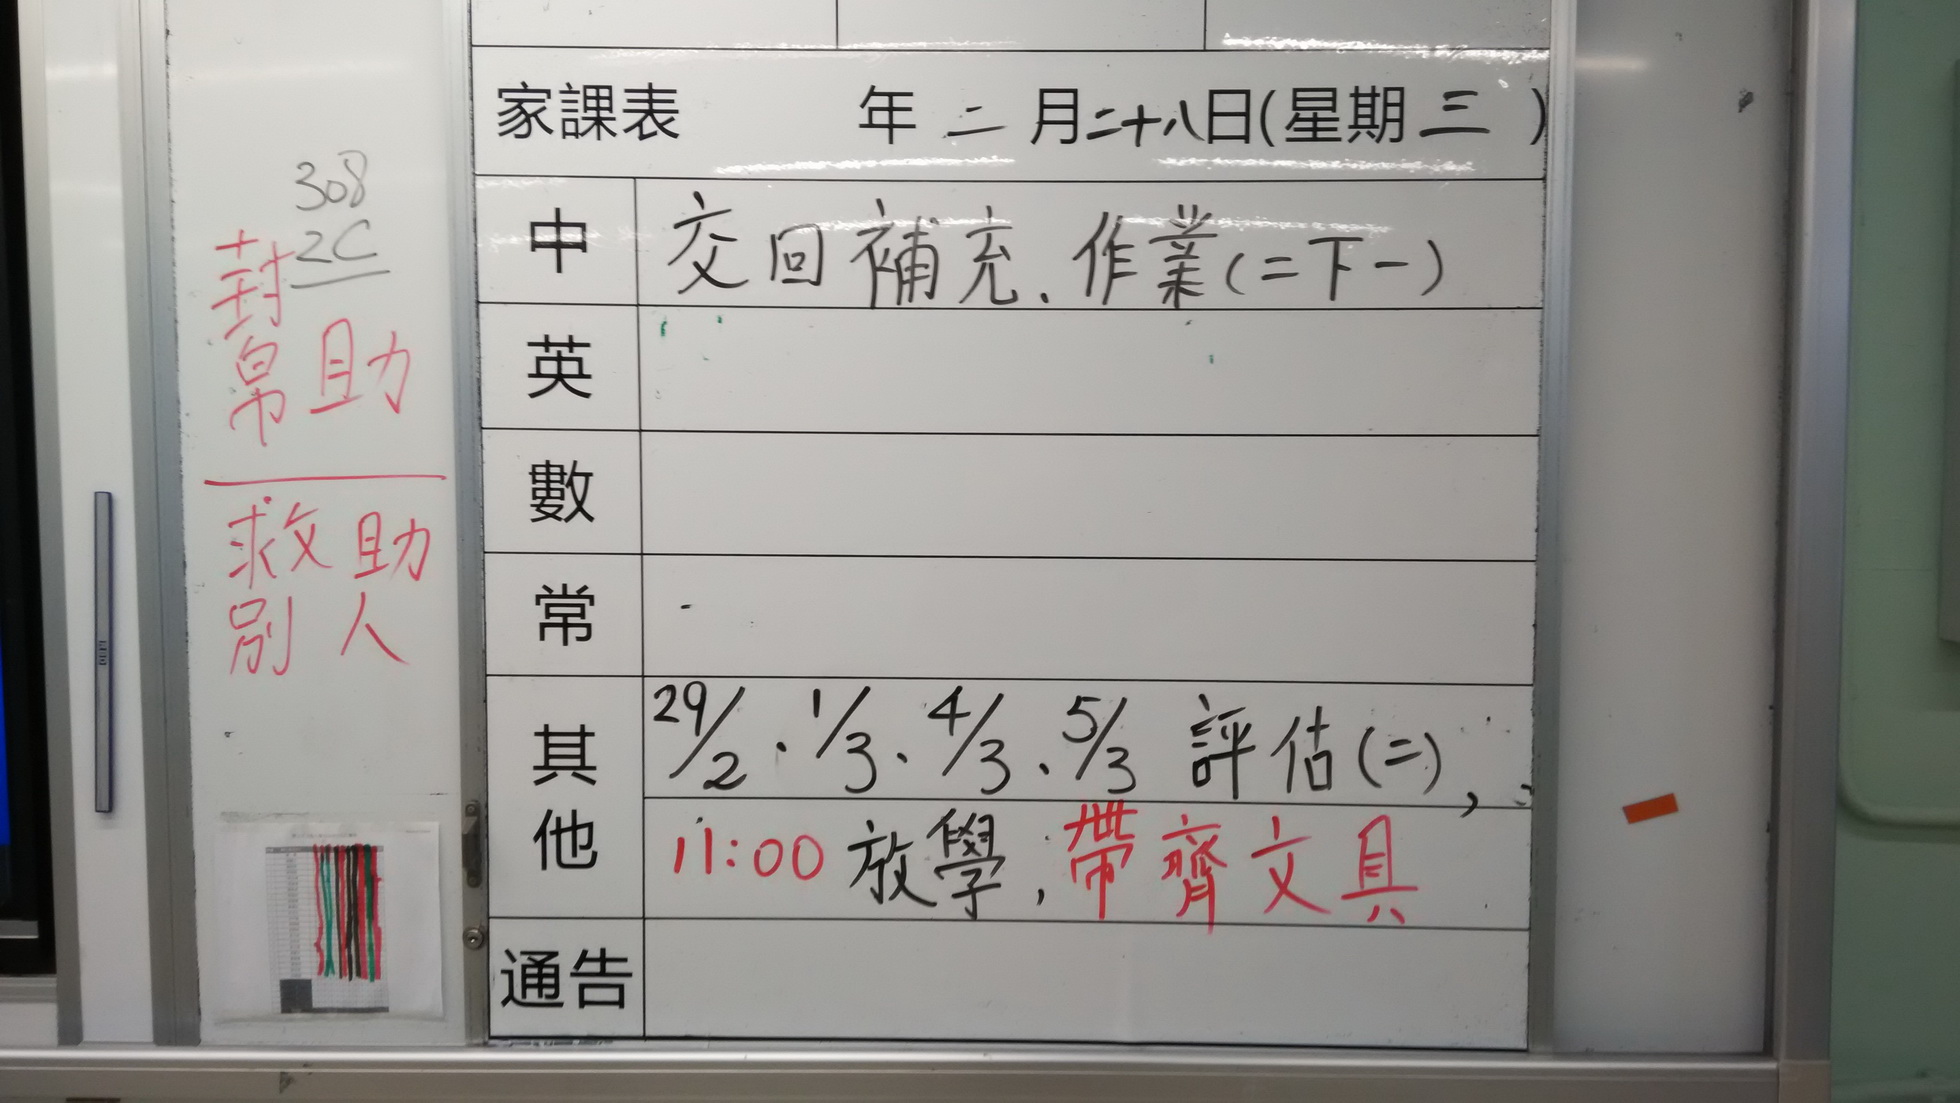 308
2C
幫助
救助
別人
家課表 年 二 月 二十八 日(星期 三 )
中 交回補充、作業(二下一)
英
數
常
其他 29/2、1/3、4/3、5/3 評估(二),
11:00 放學,帶齊文具
通告